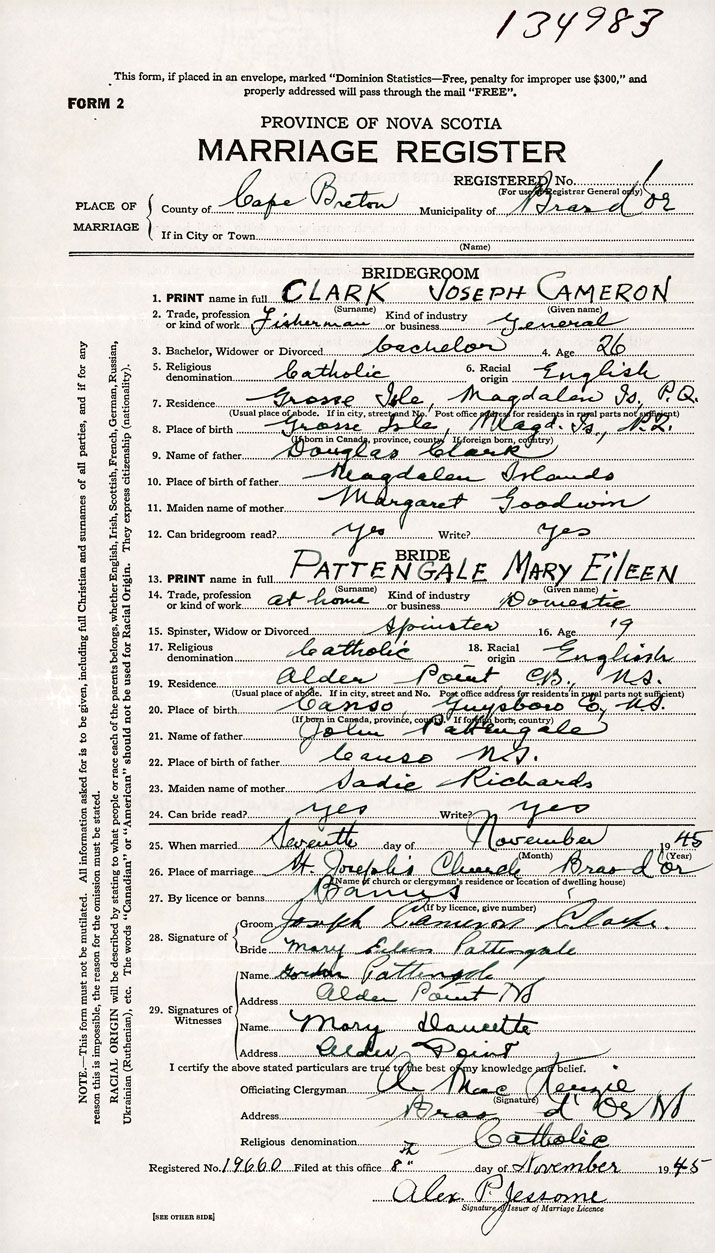 134983
This form, if placed in an envelope, marked "Dominion Statistics—Free, penalty for improper use $300," and
properly addressed will pass through the mail "FREE".
FORM 2
PROVINCE OF NOVA SCOTIA
MARRIAGE REGISTER
REGISTERED No.
(For use of Registrar General only)
PLACE OF MARRIAGE
County of Cape Breton Municipality of Bras d'Or
If in City or Town
(Name)
BRIDEGROOM
1. PRINT name in full CLARK JOSEPH CAMERON
(Surname) (Given name)
2. Trade, profession or kind of work Fisherman Kind of industry or business General
3. Bachelor, Widower or Divorced bachelor 4. Age 26
5. Religious denomination Catholic 6. Racial origin English
7. Residence Grosse Isle, Magdalen Is., P.Q.
(Usual place of abode. If in city, street and No. Post office address for residents in rural parts not sufficient)
8. Place of birth Grosse Isle, Magd. Is., P.Q.
(If born in Canada, province, county. If foreign born, country)
9. Name of father Douglas Clark
10. Place of birth of father Magdalen Islands
11. Maiden name of mother Margaret Goodwin
12. Can bridegroom read? yes Write? yes
BRIDE
13. PRINT name in full PATTENGALE MARY EILEEN
(Surname) (Given name)
14. Trade, profession or kind of work at home Kind of industry or business Domestic
15. Spinster, Widow or Divorced Spinster 16. Age 19
17. Religious denomination Catholic 18. Racial origin English
19. Residence Alder Point C.B., N.S.
(Usual place of abode. If in city, street and No. Post office address for residents in rural parts not sufficient)
20. Place of birth Canso, Guysboro Co, N.S.
(If born in Canada, province, county. If foreign born, country)
21. Name of father John Pattengale
22. Place of birth of father Canso N.S.
23. Maiden name of mother Sadie Richards
24. Can bride read? yes Write? yes
25. When married Seventh day of November 1945
(Month) (Year)
26. Place of marriage St. Joseph's Church Bras d'Or
(Name of church or clergyman's residence or location of dwelling house)
27. By licence or banns Banns
(If by licence, give number)
28. Signature of
Groom Joseph Cameron Clarke.
Bride Mary Eileen Pattengale
29. Signatures of Witnesses
Name Gordon Pattengale
Address Alder Point NS
Name Mary Doucette
Address Alder Point
I certify the above stated particulars are true to the best of my knowledge and belief.
Officiating Clergyman A. MacKenzie
(Signature)
Address Bras d'Or NS
Religious denomination Catholic
Registered No. 19660 Filed at this office 8th day of November 1945
Alex. P. Jessome
Signature of Issuer of Marriage Licence
[SEE OTHER SIDE]
NOTE.—This form must not be mutilated. All information asked for is to be given, including full Christian and surnames of all parties, and if for any
reason this is impossible, the reason for the omission must be stated.
RACIAL ORIGIN will be described by stating to what people or race each of the parents belongs, whether English, Irish, Scottish, French, German, Russian,
Ukrainian (Ruthenian), etc. The words "Canadian" or "American" should not be used for Racial Origin. They express citizenship (nationality).